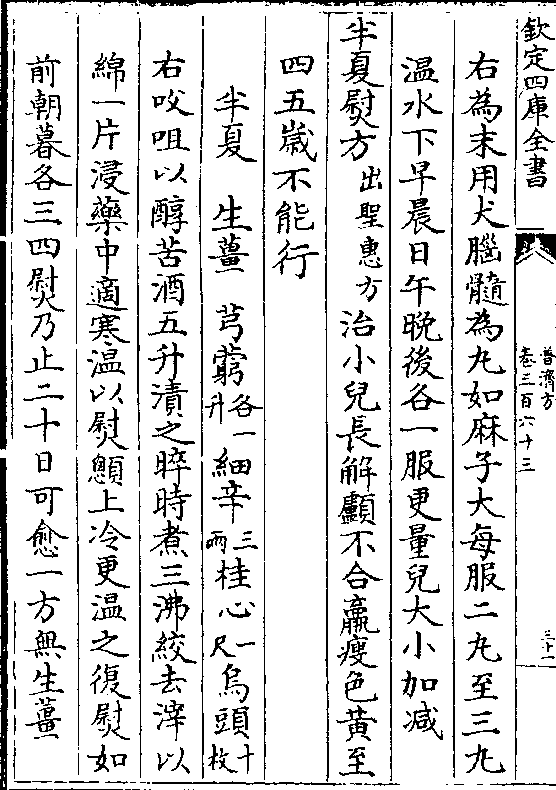 欽定四庫全書
普濟方
卷三百六十三
三十一
右為末用犬腦髓為丸如麻子大每服二丸至三丸
温水下早晨日午晚後各一服更量兒大小加減
半夏熨方出聖惠方治小兒長解顱不合羸瘦色黃至
四五歲不能行
半夏 生薑 芎藭各一升細辛三兩桂心一尺烏頭十枚
右㕮咀以醇苦酒五升漬之晬時煮三沸絞去滓以
綿一片浸藥中適寒温以熨顖上冷更温之復熨如
前朝暮各三四熨乃止二十日可愈一方無生薑